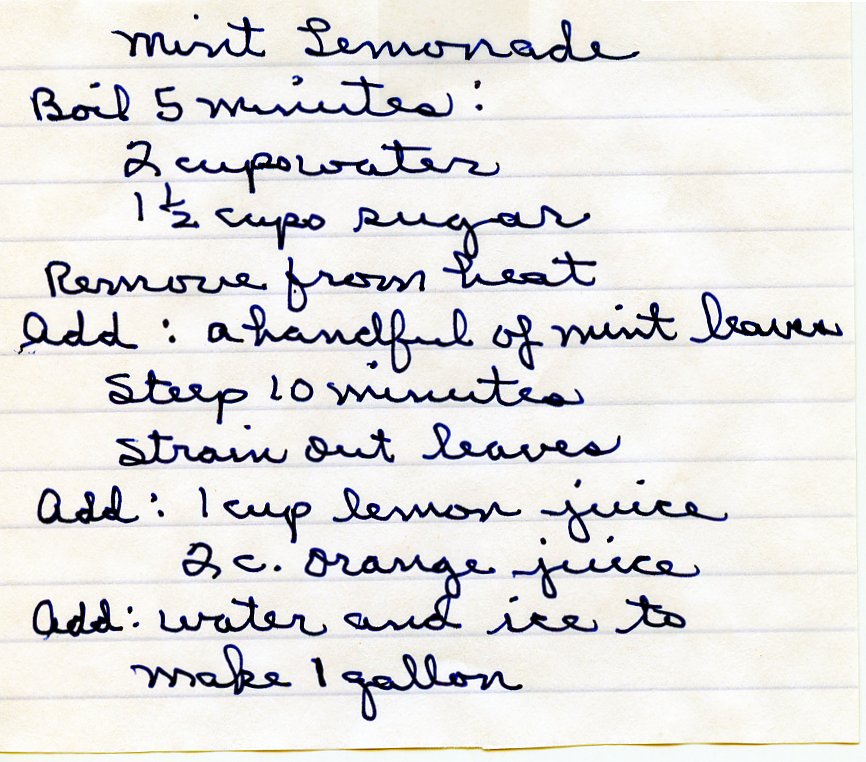 Mint Lemonade
Boil 5 minutes:
2 cups water
1 1/2 cups sugar
Remove from heat
Add: a handful of mint leaves
Steep 10 minutes
Strain out leaves
Add: 1 cup lemon juice
2 c. orange juice
Add: water and ice to
make 1 gallon